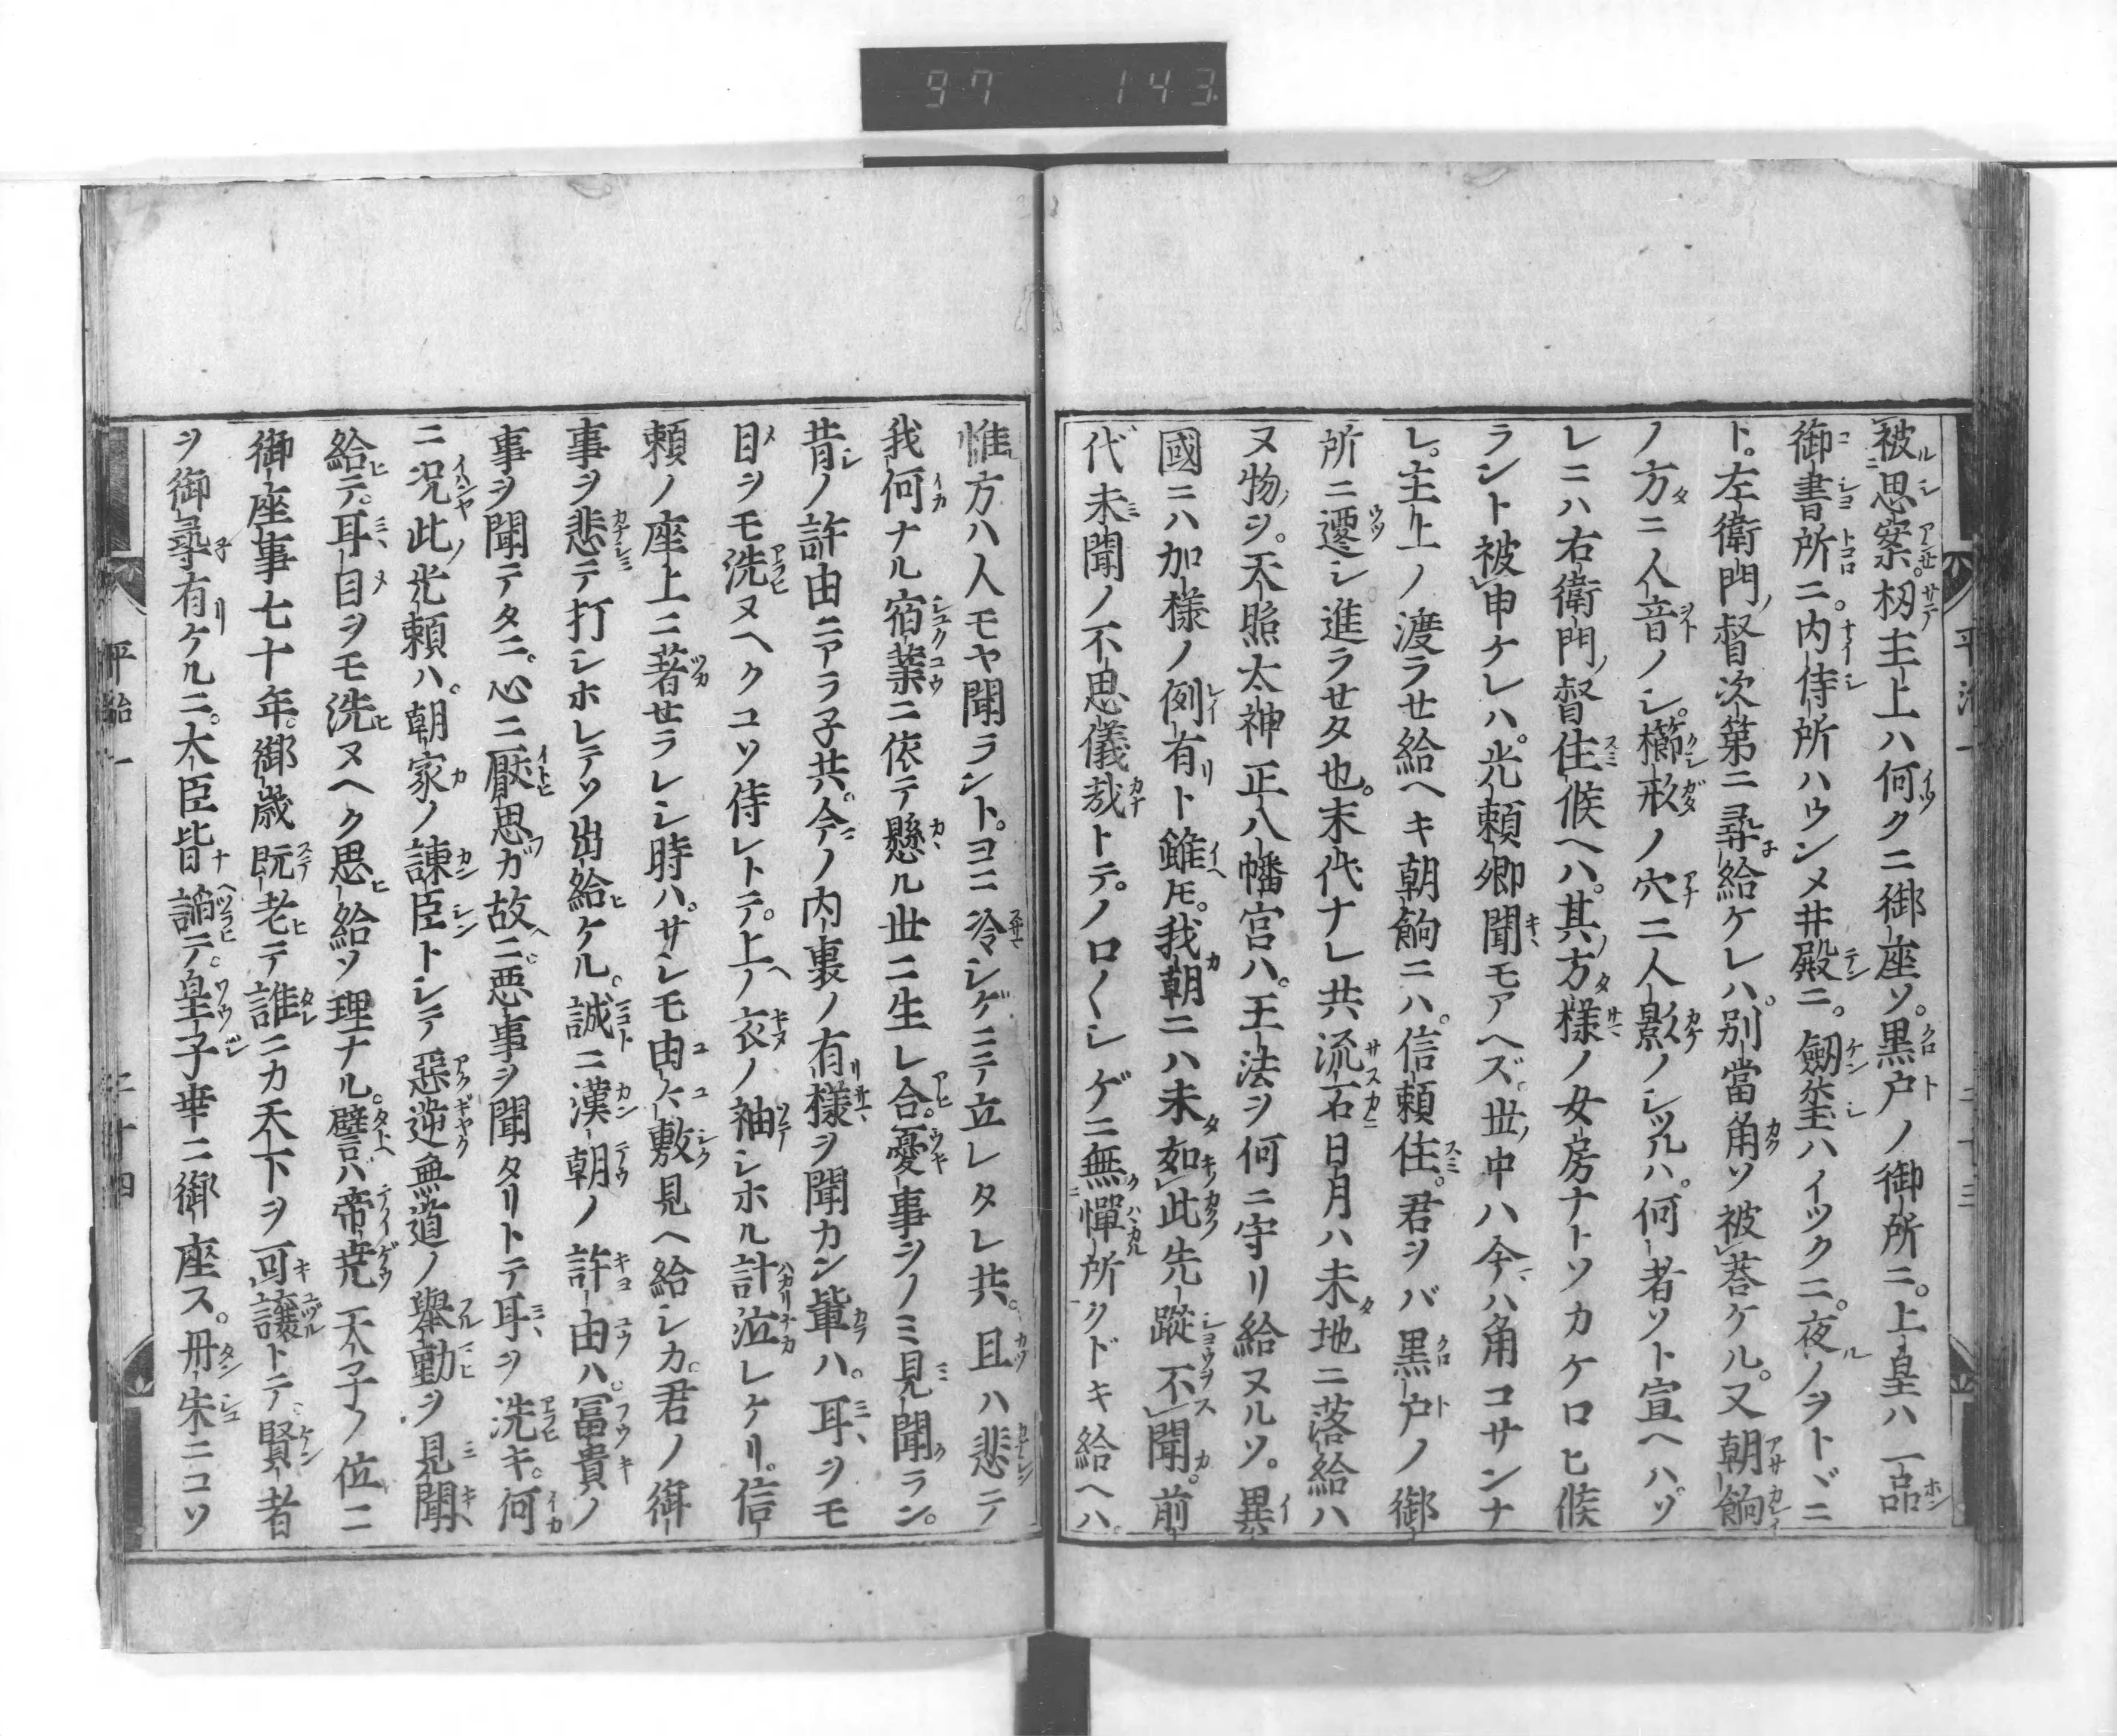 97 143
被思案。扨主上ハ何クニ御座ソ。黒戸ノ御所ニ。上皇ハ一品
御書所ニ。内侍所ハウンメ井殿ニ。劔璽ハイツクニ。夜ノヲトヾニ
ト。左衛門ノ督次第ニ尋給ケレハ。別當角ソ被荅ケル。又朝餉
ノ方ニ人音ノシ。櫛形ノ穴ニ人影ノシツルハ。何者ソト宣ヘハ。ソ
レニハ右衛門ノ督住候ヘハ。其ノ方様ノ女房ナトソカケロヒ候
ラント被申ケレハ。光頼卿聞モアヘズ。世ノ中ハ今ハ角コサンナ
レ。主上ノ渡ラせ給ヘキ朝餉ニハ。信頼住。君ヲバ黒戸ノ御
所ニ遷シ進ラせタ也。末代ナレ共流石日月ハ未地ニ落給ハ
ヌ物ヲ。天照太神正八幡宮ハ。王法ヲ何ニ守リ給ヌルソ。異
國ニハ加様ノ例有ト雖モ。我朝ニハ未如此先蹤不聞。前
代未聞ノ不思儀哉トテ。ノロ〱シゲニ無憚所クドキ給ヘハ。
惟方ハ人モヤ聞ラント。ヨニ冷シゲニテ立レタレ共。且ハ悲テ
我何ナル宿業ニ依テ懸ル世ニ生レ合。憂事ヲノミ見聞ラン。
昔ノ許由ニアラ子共。今ノ内裏ノ有様ヲ聞カン輩ハ。耳ヲモ
目ヲモ洗ヌヘクコソ侍レトテ。上ノ衣ノ袖シホル計泣レケリ。信
頼ノ座上ニ著せラレシ時ハ。サシモ由々敷見ヘ給シカ。君ノ御
事ヲ悲テ打シホレテソ出給ケル。誠ニ漢朝ノ許由ハ。冨貴ノ
事ヲ聞テタニ。心ニ厭思ガ故ニ。悪事ヲ聞タリトテ耳ヲ洗キ。何
ニ况此ノ光頼ハ。朝家ノ諫臣トシテ惡逆無道ノ擧動ヲ見聞
給テ。耳目ヲモ洗ヌヘク思給ソ理ナル。譬バ帝尭天子ノ位ニ
御座事七十年。御歳既老テ誰ニカ天下ヲ可讓トテ。賢者
ヲ御尋有ケルニ。大臣皆諂テ。皇子幸ニ御座ス。丹朱ニコソ
平治一 二十四